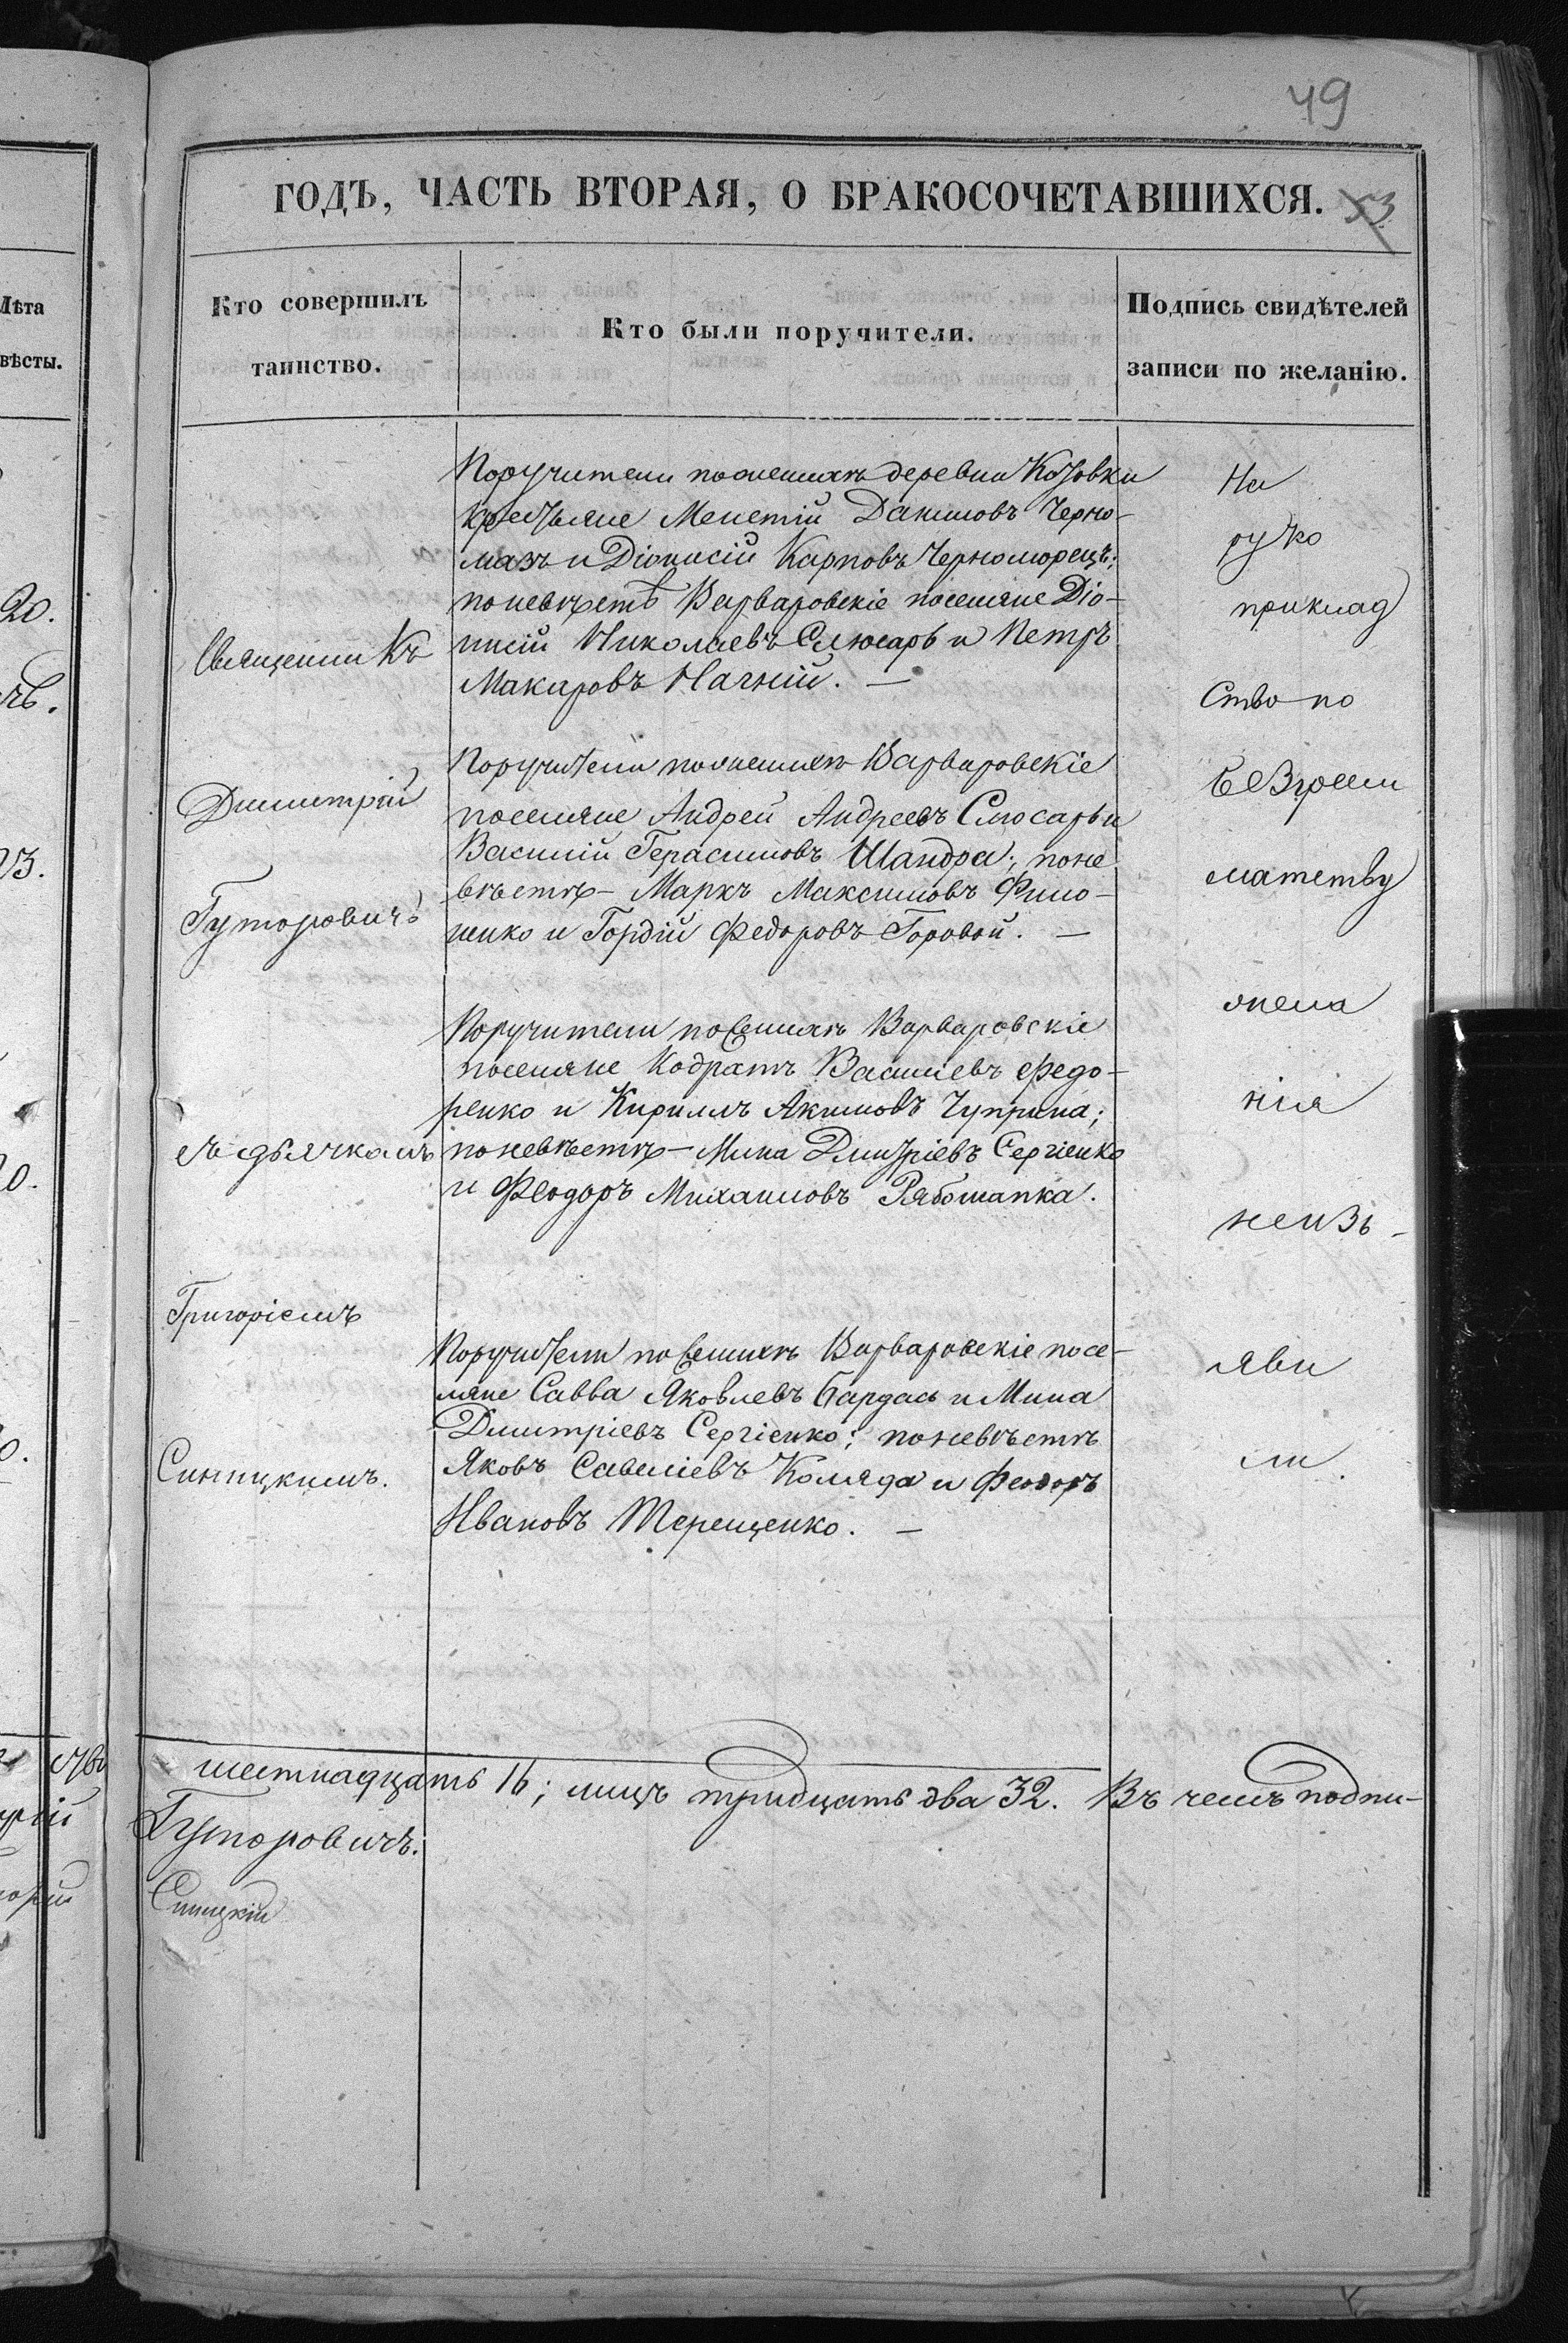 49
ГОДЪ, ЧАСТЬ ВТОРАЯ, О БРАКОСОЧЕТАВШИХСЯ.
53
Лѣта
вѣсты.
Кто совершилъ
таинство.
Кто были поручители.
Подпись свидѣтелей
записи по желанію.
20.
Священникъ
Димитрій
Гуторовичъ
съ дьячкомъ
Григоріемъ
Синицкимъ.
Поручители по женихѣ деревни Козовки
крестьяне Мелетій Даниловъ Черно-
мазъ и Діонисій Карповъ Черноморецъ;
по невѣстѣ Варваровскіе поселяне Діо-
нисій Николаевъ Слюсарь и Петръ
Макаровъ Нагній. —
Поручители по женихѣ Варваровскіе
поселяне Андрей Андреевъ Слюсарь и
Василій Герасимовъ Шандра; по не
вѣстѣ – Маркъ Максимовъ Фило-
ненко и Гордій Федоровъ Горовой. —
Поручители по женихѣ Варваровскіе
поселяне Кодратъ Василіевъ Федо-
ренко и Кириллъ Акимовъ Чуприна;
по невѣстѣ – Мина Дмитріевъ Сергіенко
и Феодоръ Михаиловъ Рябошапка.
Поручители по женихѣ Варваровскіе посе-
ляне Савва Яковлевъ Бардась и Мина
Дмитріевъ Сергіенко; по невѣстѣ
Яковъ Савеліевъ Коляда и Феодоръ
Ивановъ Терещенко. —
На
руко
приклад
ство по
безграм
матству
жела
нія
неизъ-
яви
ли.
шестнадцать 16; лицъ тридцать два 32. Въ чемъ подпи-
Гуторовичъ.
Синицкій